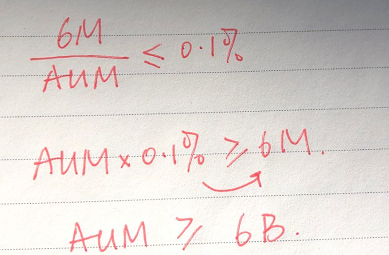 6M / AUM ≤ 0.1%
AUM × 0.1% ≥ 6M.
AUM ≥ 6B.